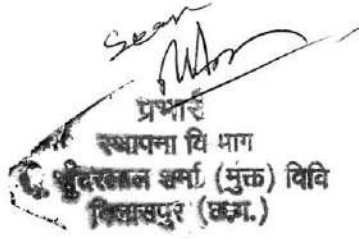 Seen
प्रभारी
स्थापना विभाग
सुंदरलाल शर्मा (मुक्त) विवि
बिलासपुर (छ.ग.)